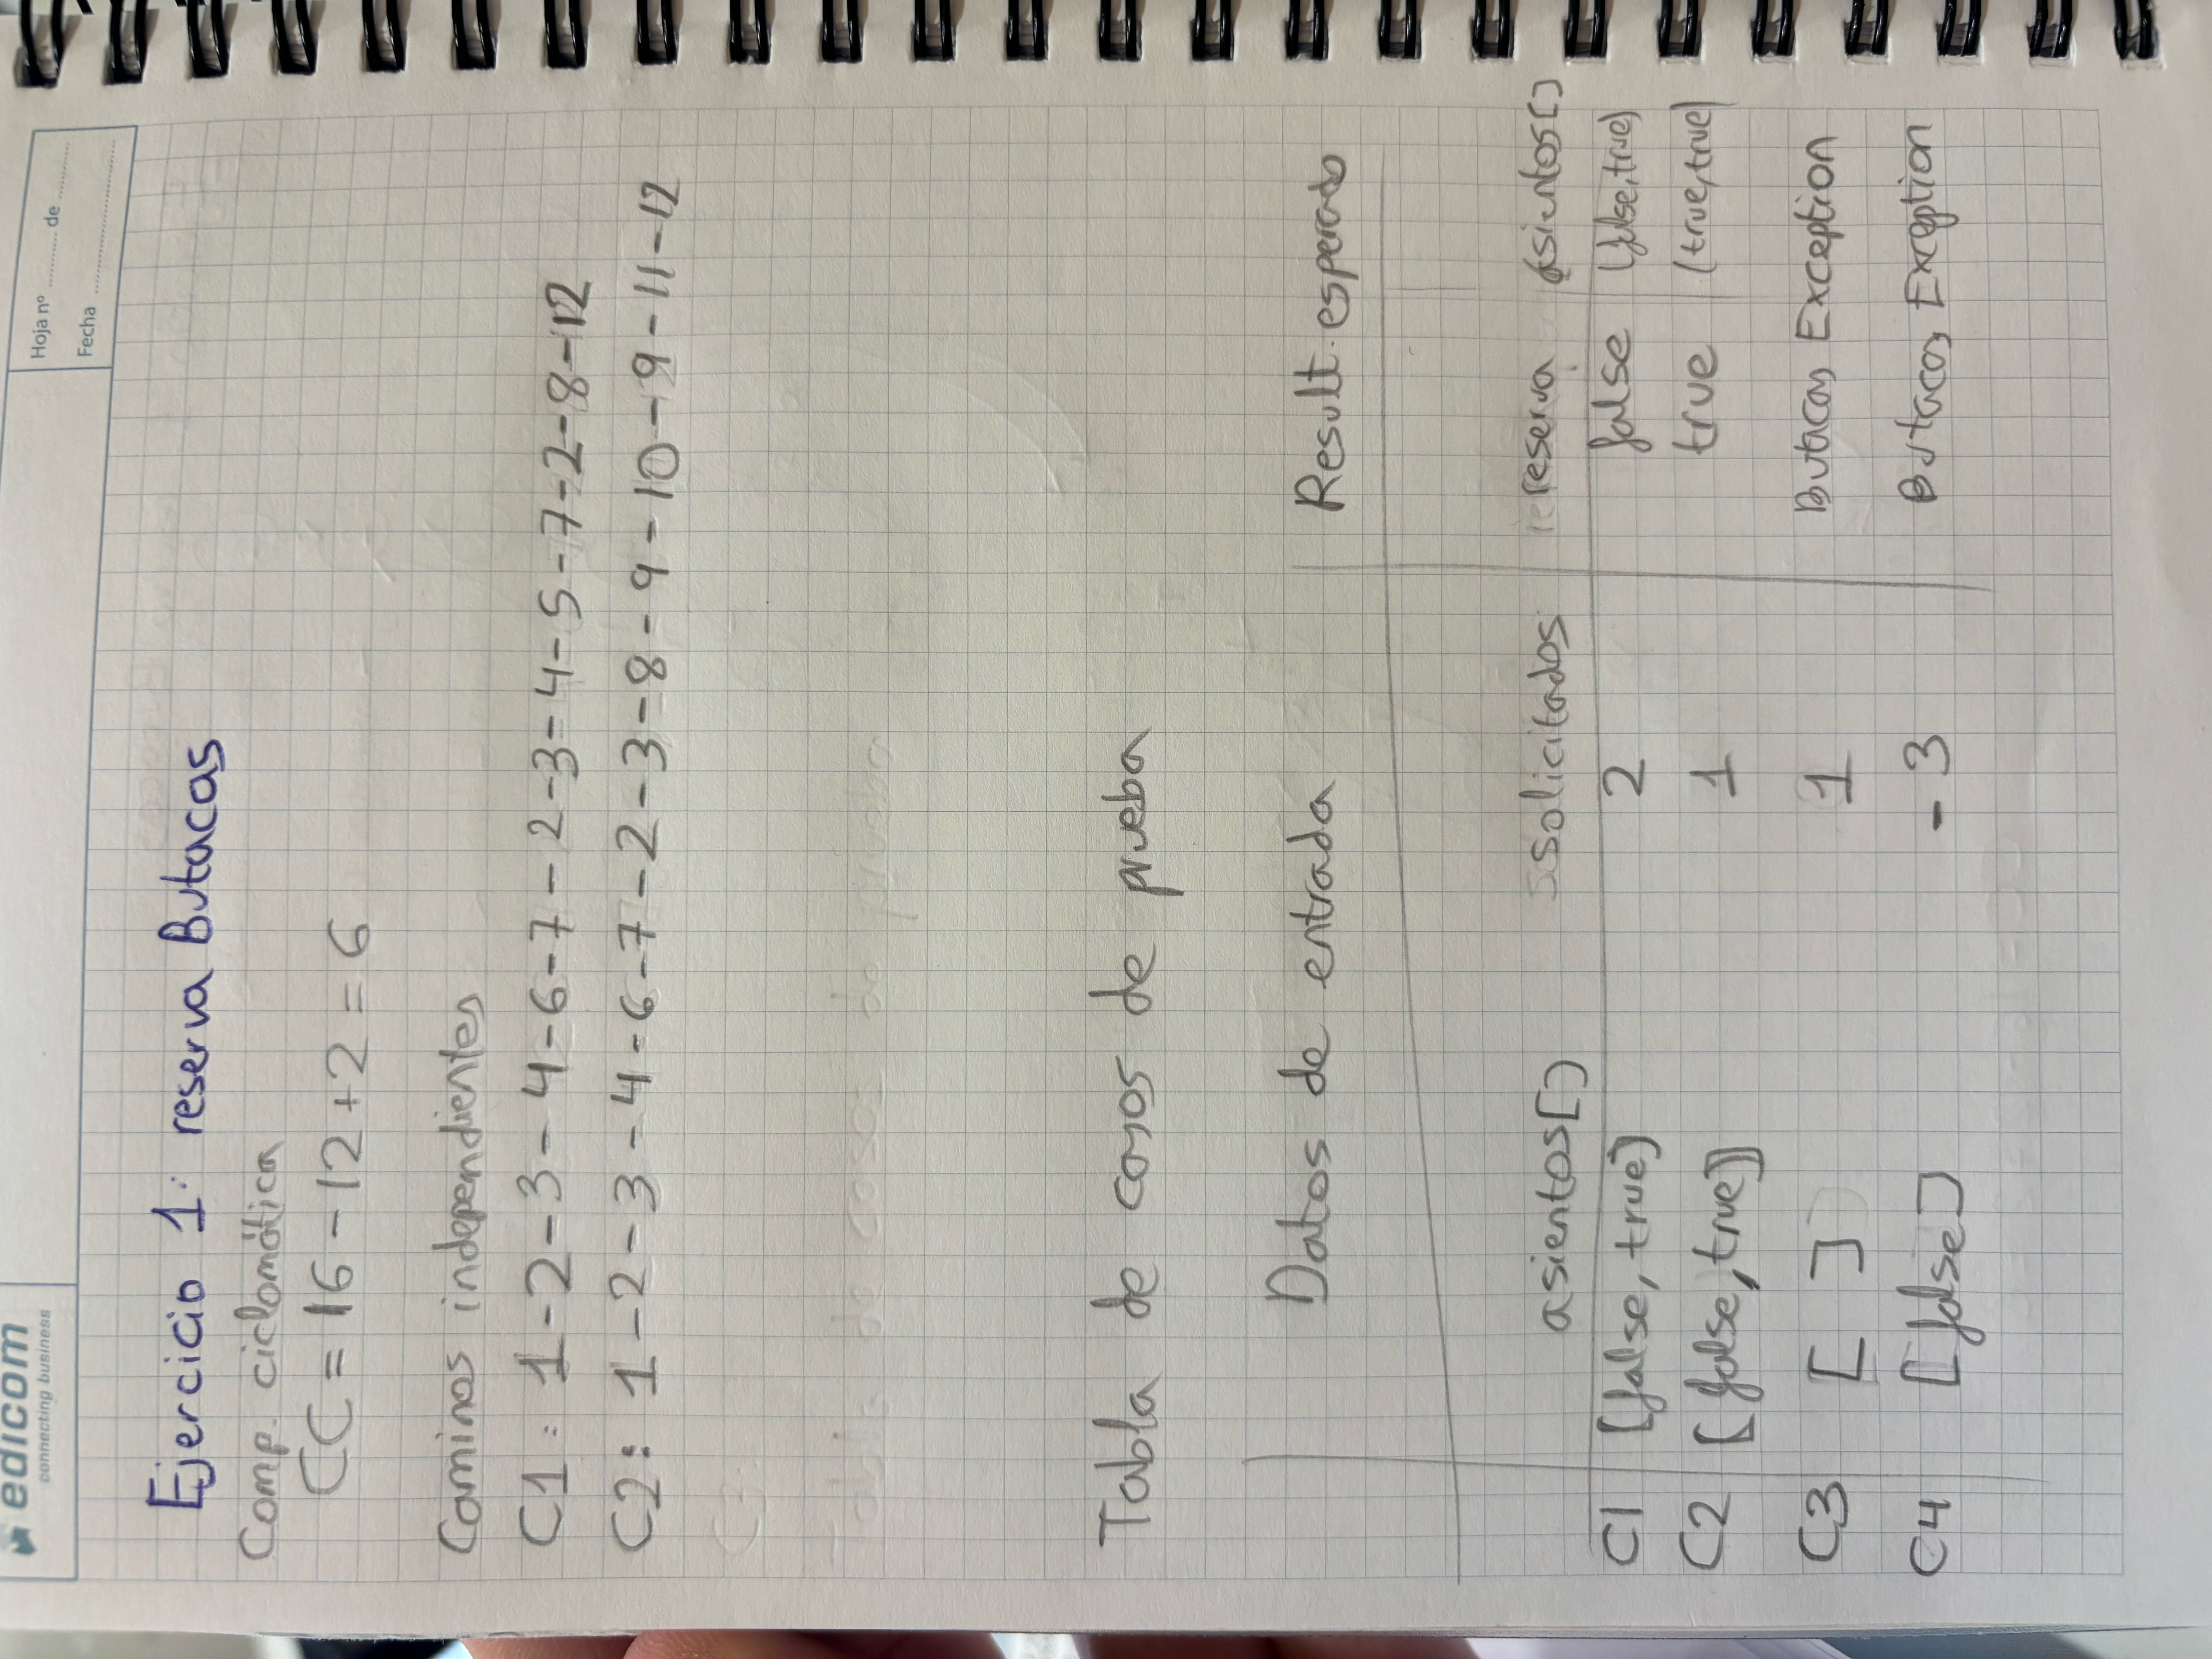 edicom
connecting business
Hoja nº .......... de ..........
Fecha ..........
Ejercicio 1: reserva Butacas
Comp. ciclomática
CC = 16 - 12 + 2 = 6
Caminos independientes
C1: 1-2-3-4-6-7-2-3-4-5-7-2-8-12
C2: 1-2-3-4-6-7-2-3-8-9-10-9-11-12
C3:
Tabla de casos de prueba
Tabla de casos de prueba
Datos de entrada Result. esperado
asientos[] solicitados reserva asientos[]
C1 [false, true] 2 false (false, true)
C2 [false, true] 1 true (true, true)
C3 [ ] 1 Butacas Exception
C4 [false] -3 Butacas Exception